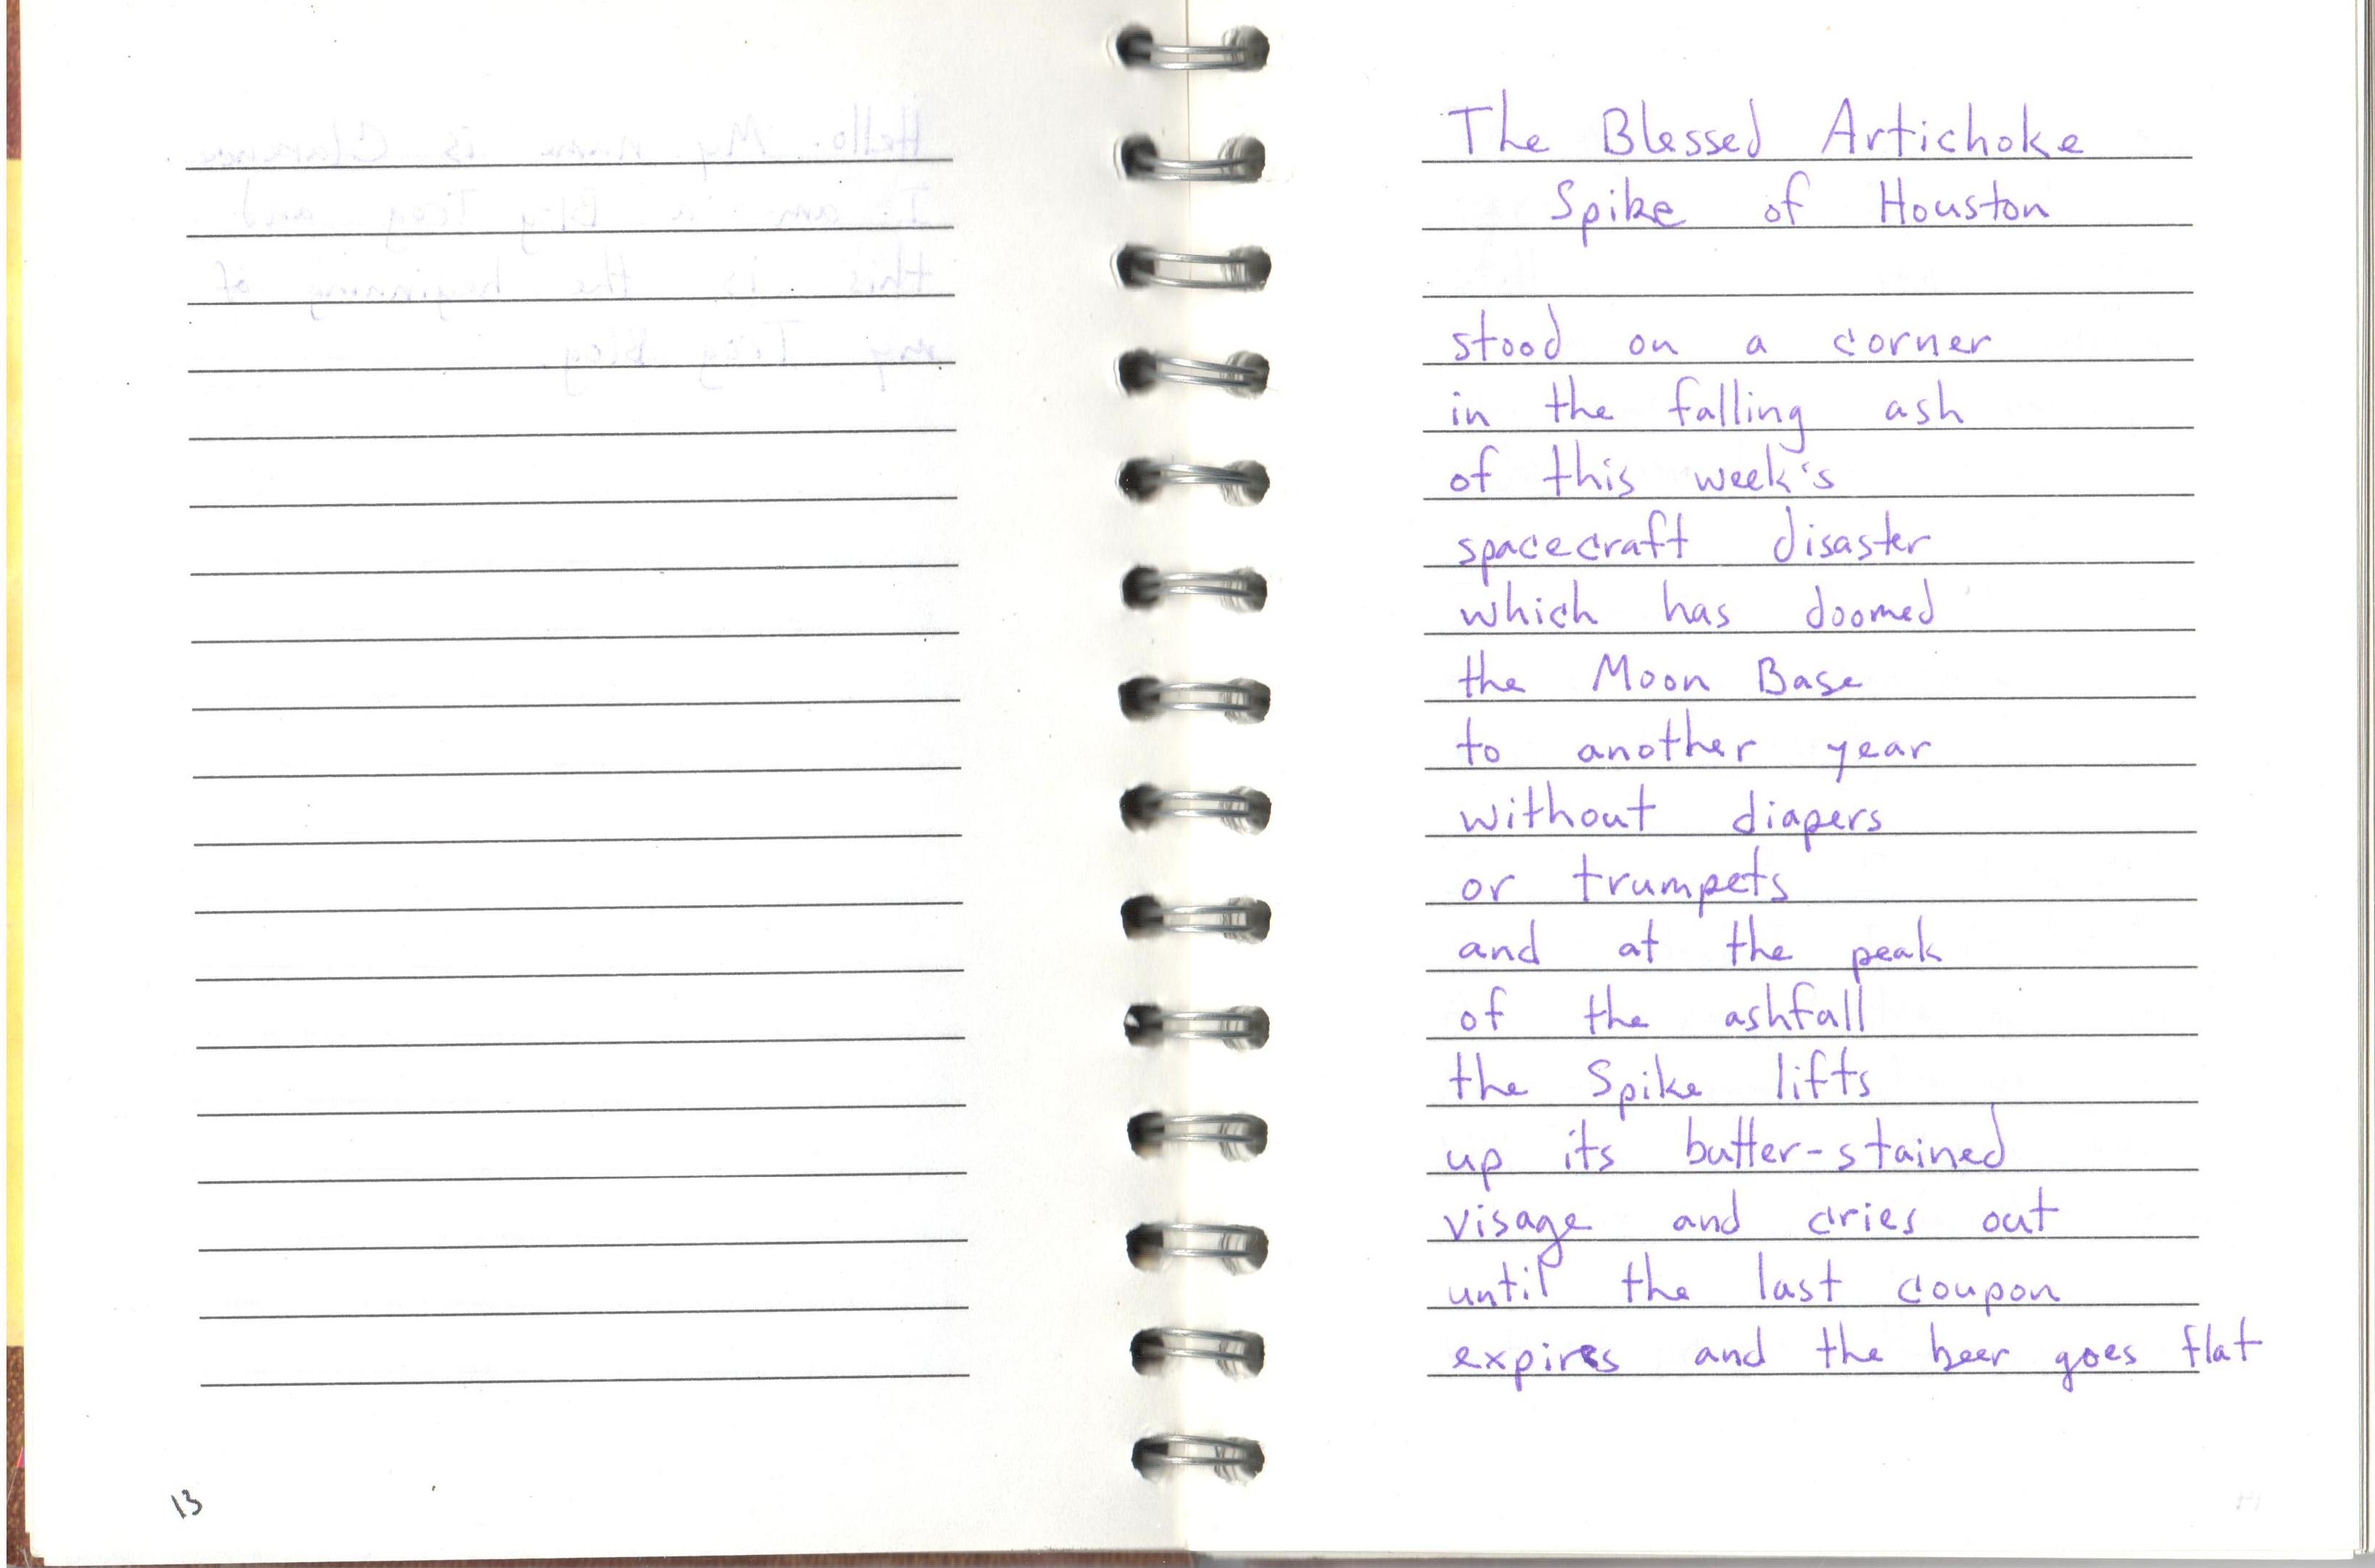 Hello. My name is Clarence
I am a Blog Trog and
this is the beginning of
my Trog Blog
13
The Blessed Artichoke
Spike of Houston
stood on a corner
in the falling ash
of this week's
spacecraft disaster
which has doomed
the Moon Base
to another year
without diapers
or trumpets
and at the peak
of the ashfall
the Spike lifts
up its butter-stained
visage and cries out
until the last coupon
expires and the beer goes flat